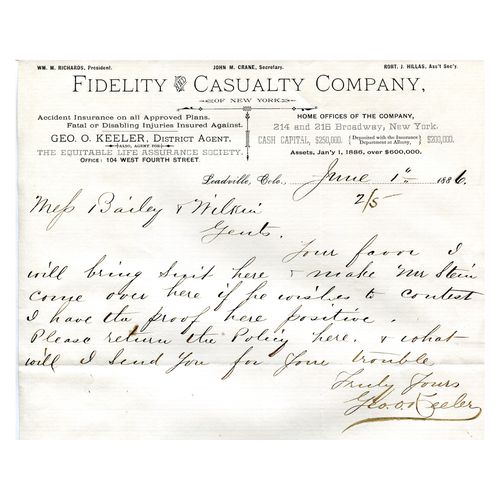 WM. M. RICHARDS, President. JOHN M. CRANE, Secretary. ROBT. J. HILLAS, Ass't Sec'y.
FIDELITY AND CASUALTY COMPANY,
OF NEW YORK
Accident Insurance on all Approved Plans.
Fatal or Disabling Injuries Insured Against.
GEO. O. KEELER, DISTRICT AGENT.
ALSO, AGENT FOR
THE EQUITABLE LIFE ASSURANCE SOCIETY.
OFFICE: 104 WEST FOURTH STREET.
HOME OFFICES OF THE COMPANY,
214 and 215 Broadway, New York.
CASH CAPITAL, $250,000. {Deposited with the Insurance Department at Albany,} $200,000.
Assets, Jan'y 1, 1886, over $600,000.
Leadville, Colo., June 1" 1886.
2/5
Mess Bailey & Wilkin
Gents.
Your favor I
will bring suit here & make Mr Stein
come over here if he wishes to contest
I have the proof here positive.
Please return the Policy here. & what
will I send You for Your trouble
Truly Yours
Geo. O. Keeler